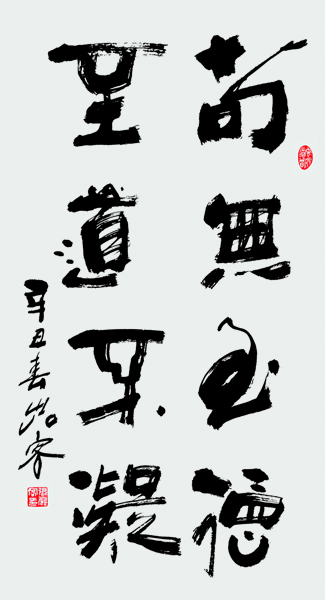 苟無至德
至道不凝
辛丑春